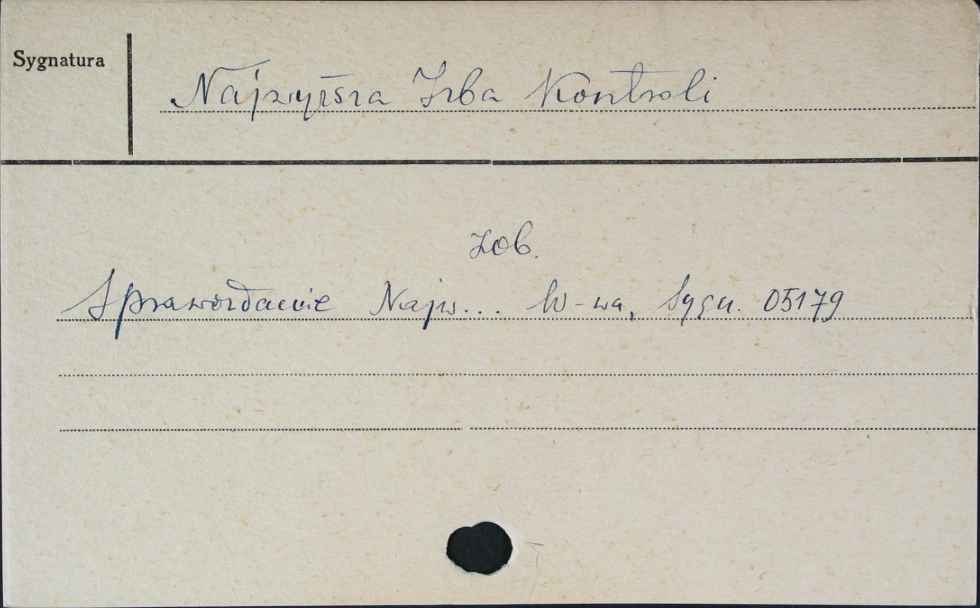 Sygnatura
Najwyższa Izba Kontroli
zob.
Sprawozdanie Najw... W-wa, Sygn. 05179